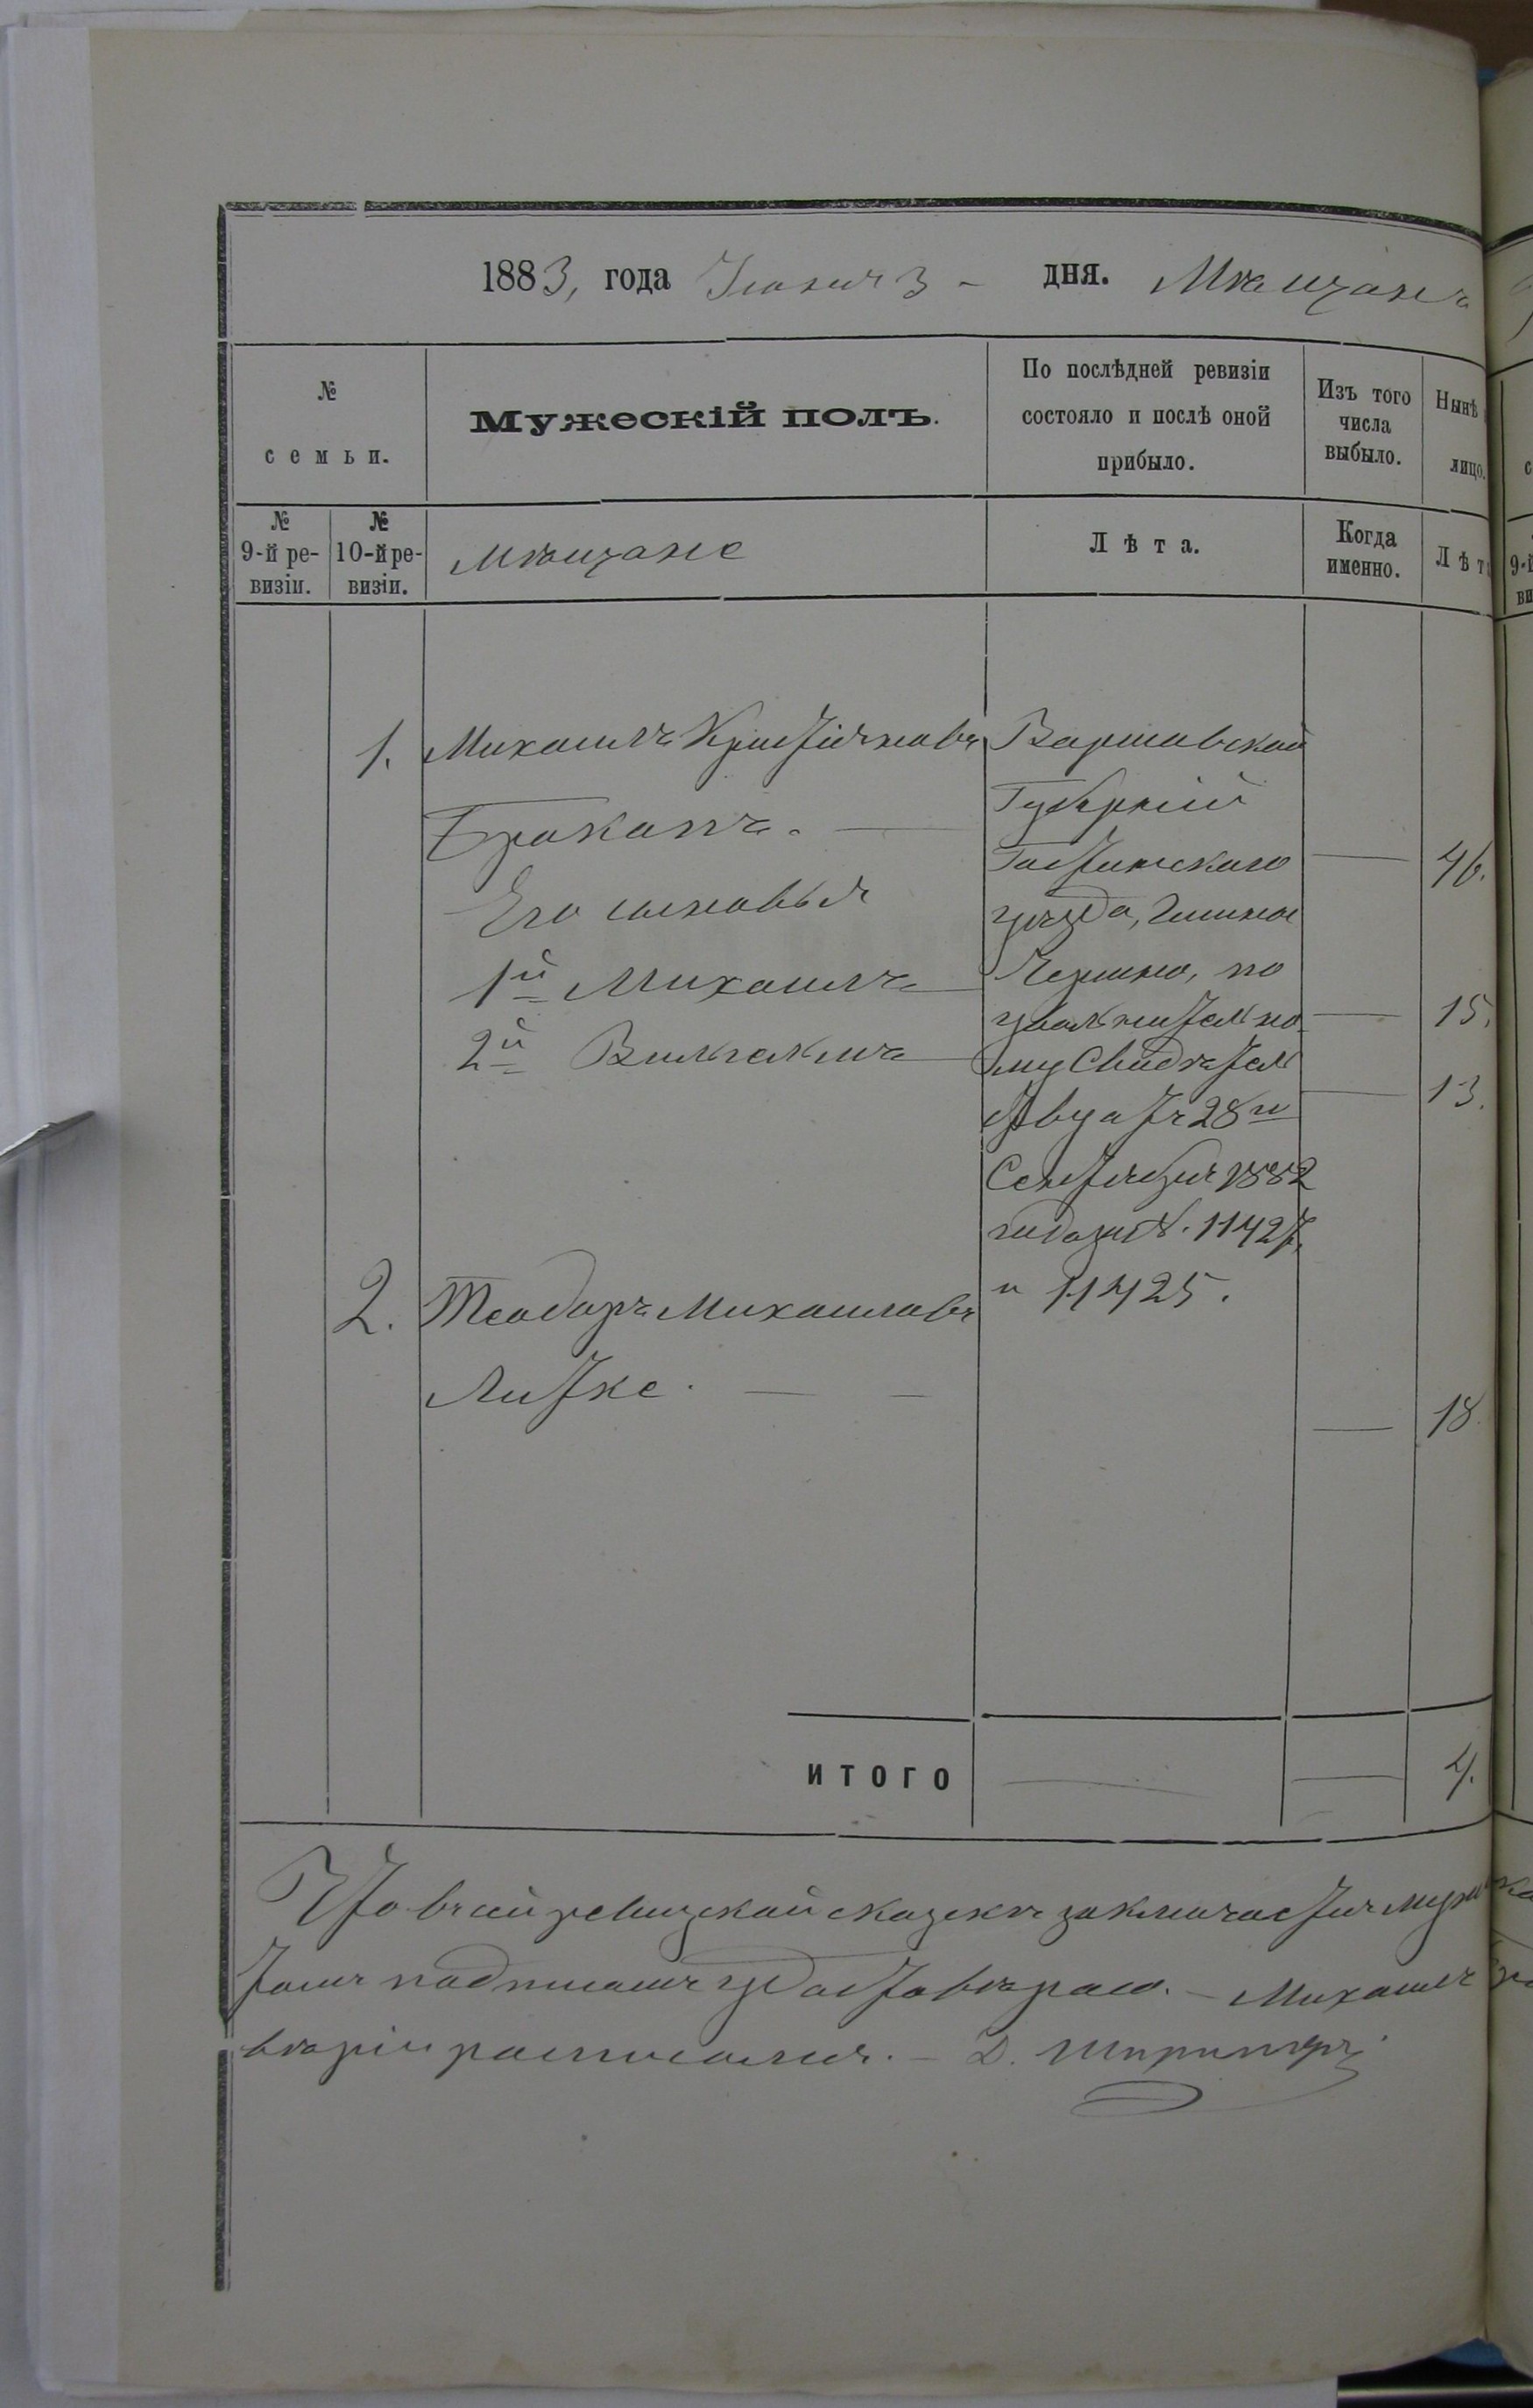 1883, года Іюня 3 - дня. Мѣщанъ
№
семьи.
Мужескій полъ.
По послѣдней ревизіи
состояло и послѣ оной
прибыло.
Изъ того
числа
выбыло.
Нынѣ
лицо.
№
9-й ре-
визіи.
№
10-й ре-
визіи.
Мѣщане
Лѣта.
Когда
именно.
Лѣт
1. Михаилъ Кристіановъ
Браканъ.
Его сыновья
1й Михаилъ
2й Вильгельмъ
Варшавской
Губерніи
Гостинскаго
уѣзда, Гмины
по
увольнитель но
му Свидѣтель
ству отъ 28го
Сентября 1882
года за №. 11427,
и 11425.
46.
15.
13.
2. Теодоръ Михаиловъ
Литке.
18
ИТОГО
4.
Что въ сей ревизской сказкѣ заключается
подписомъ удостовѣряю. - Михаилъ
расписался. - Д.